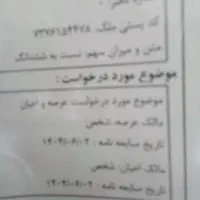 کد پستی ملک: ۷۳۷۶۱۵۴۴۷۸
متن و میزان سهم: نسبت به ششدانگ
موضوع مورد درخواست:
موضوع مورد درخواست: عرصه و اعیان
مالک عرصه: شخص
تاریخ مبایعه نامه: ۱۴۰۲/۰۶/۰۲
مالک اعیان: شخص
تاریخ مبایعه نامه: ۱۴۰۲/۰۶/۰۲